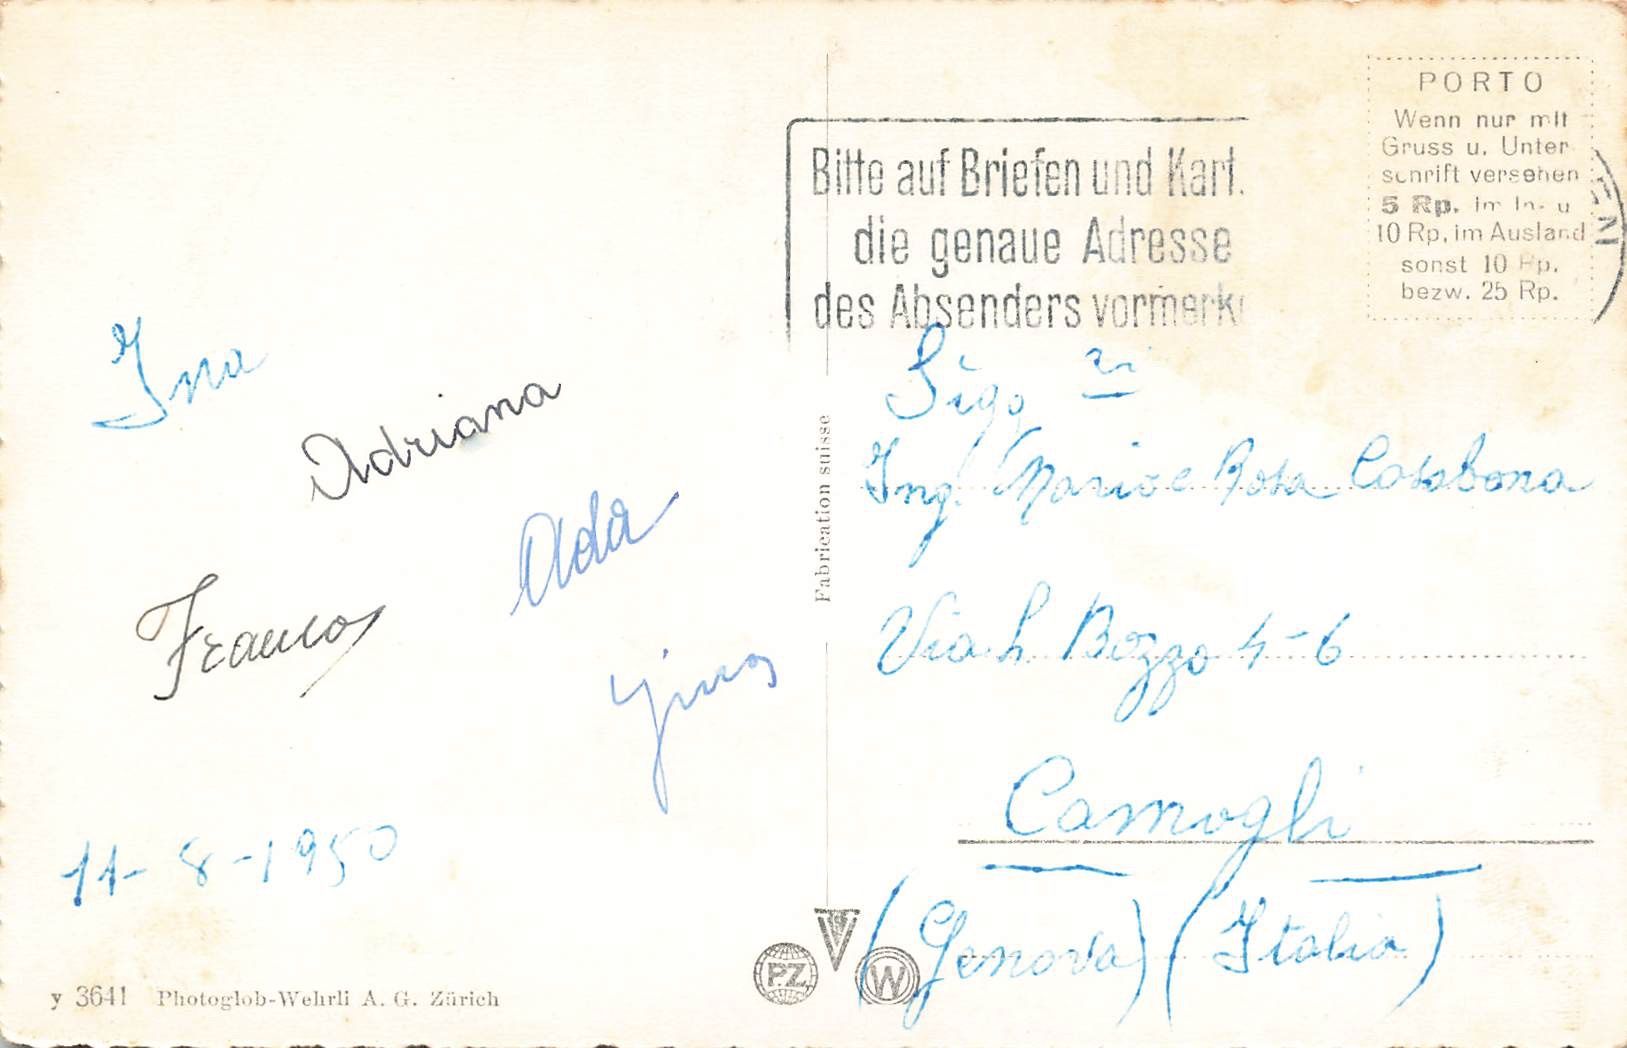 Ina
Adriana
Ada
Franco
11-8-1950
y 3641 Photoglob-Wehrli A. G. Zürich
Fabrication suisse
P.Z
W
Bitte auf Briefen und Kart.
die genaue Adresse
des Absenders vormerk
PORTO
Wenn nur mit
Gruss u. Unter
schrift versehen
5 Rp. im In- u
10 Rp. im Ausland
sonst 10 Rp.
bezw. 25 Rp.
Sigg ri
Ing. Mario e Rosa Casabona
Via L. Bozzo 4-6
Camogli
(Genova) (Italia)